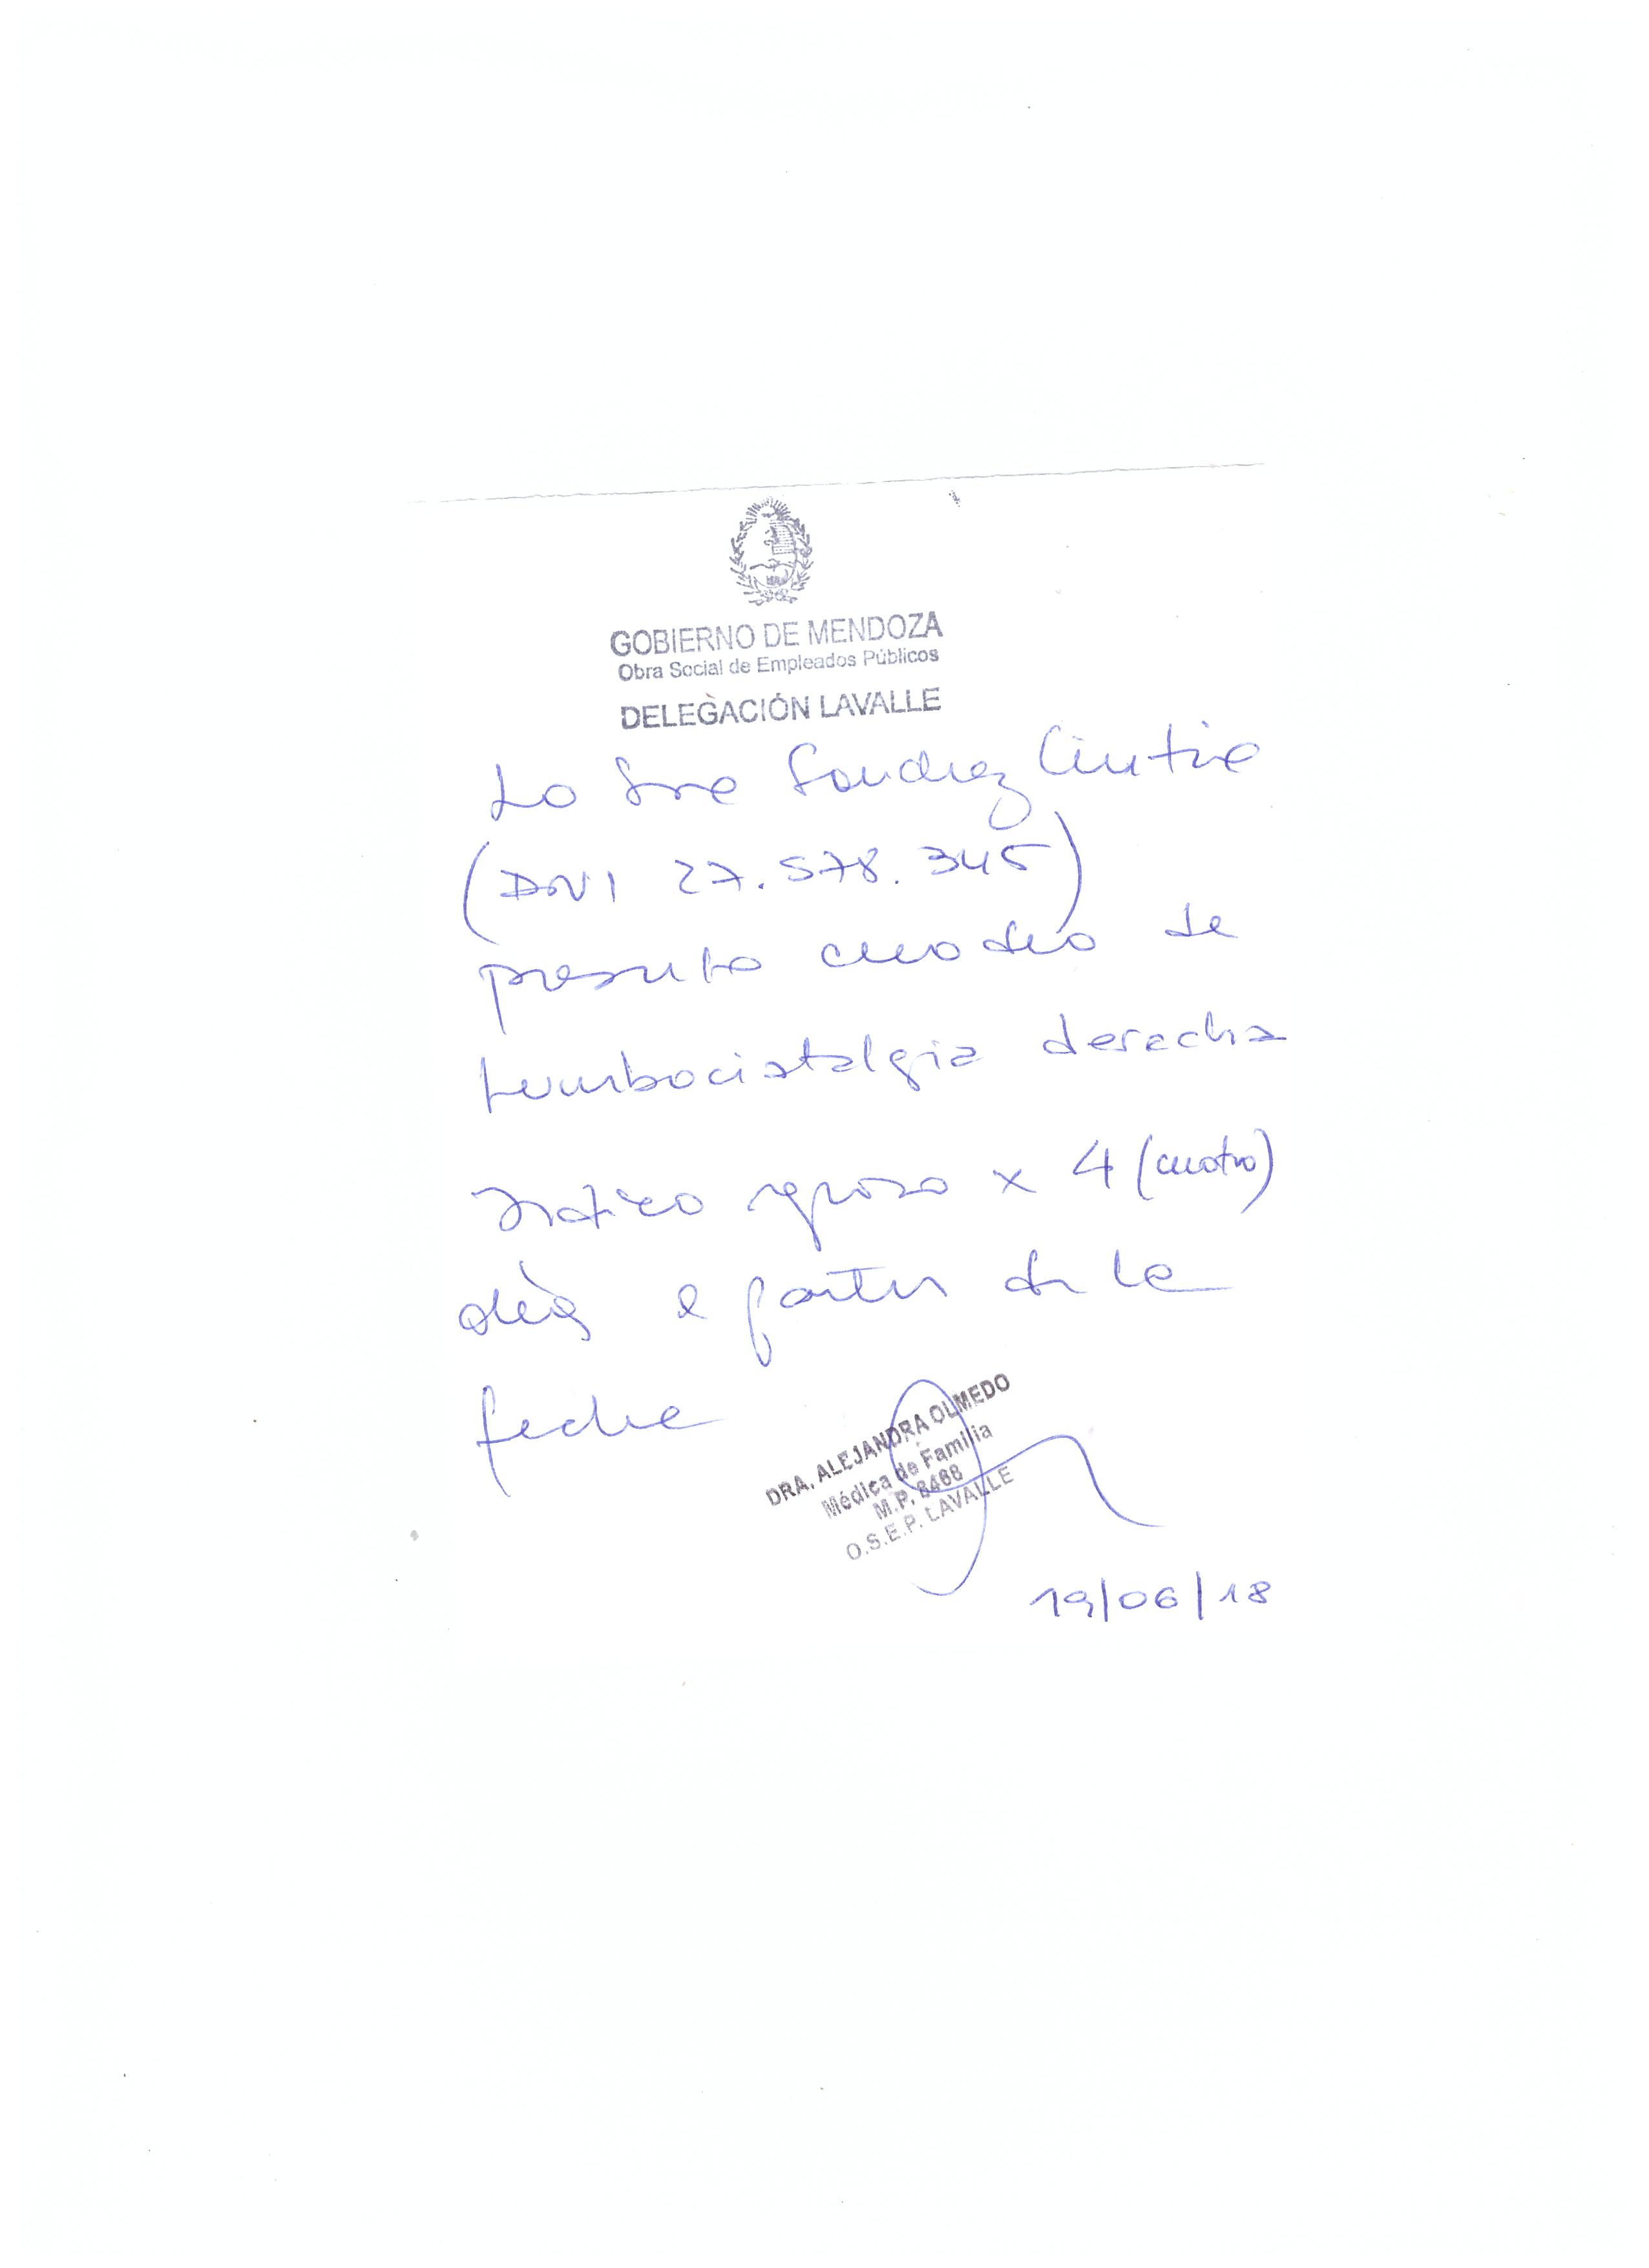 GOBIERNO DE MENDOZA
Obra Social de Empleados Públicos
DELEGACIÓN LAVALLE
La Sra Sanchez Cintia
(DNI 27.578.345)
presenta cuadro de
lumbociatalgia derecha
Indico reposo x 4 (cuatro)
días a partir de la
fecha
DRA. ALEJANDRA OLMEDO
Médica de Familia
M.P. 8468
O.S.E.P. LAVALLE
19/06/18